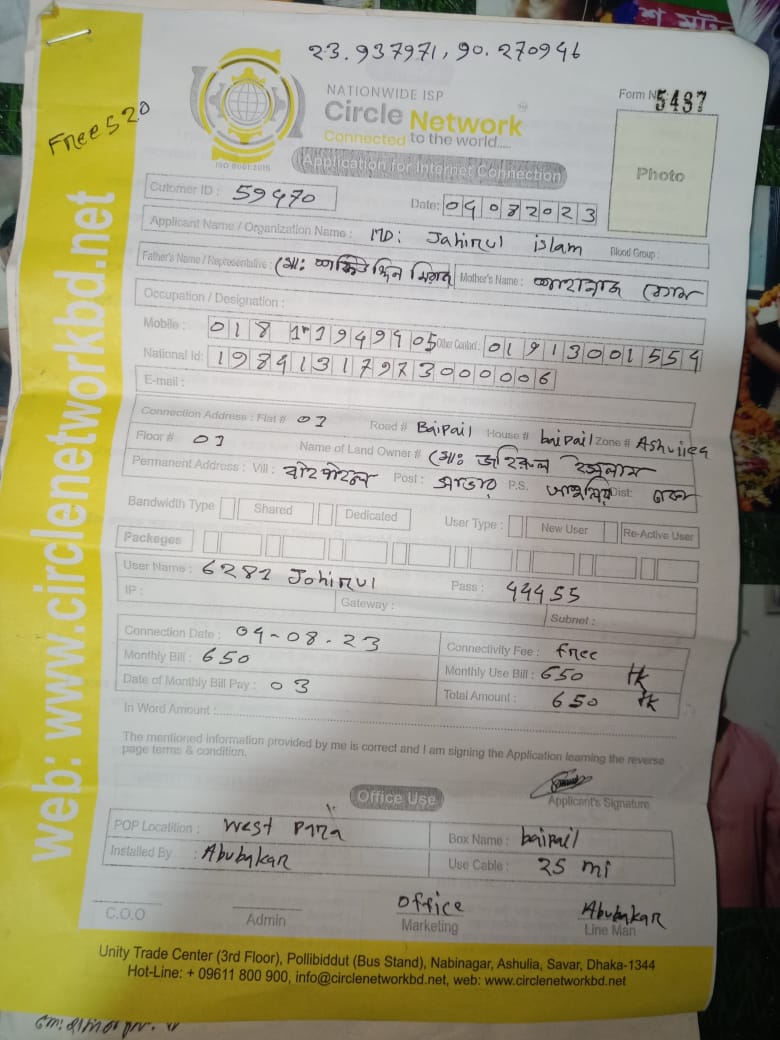 শ
23.937971, 90.270946
NATIONWIDE ISP
Circle Network
Connected to the world.....
ISO 9001:2015
Form N 5437
Free 520
Application for Internet Connection
Photo
Cutomer ID : 59470
Date: 04082023
Applicant Name / Organization Name : MD: Jahirul islam Blood Group :
Father's Name / Representative : Mother's Name :
Occupation / Designation :
Mobile : 018 1949405 Other Contact : 01913001554
National Id: 19841317973000006
E-mail :
Connection Address : Flat # 03 Road # Baipail House # baipail Zone #
Floor # 03 Name of Land Owner # মোঃ জহিরুল ইসলাম
Permanent Address : Vill : Post : সাভার P.S. Dist: ঢাকা
Bandwidth Type Shared Dedicated User Type : New User Re-Active User
Packeges
User Name : 6282 Johirul Pass : 44455
IP : Gateway : Subnet :
Connection Date : 04-08.23 Connectivity Fee : free
Monthly Bill : 650 Monthly Use Bill : 650 tk
Date of Monthly Bill Pay : 03 Total Amount : 650 tk
In Word Amount :
The mentioned information provided by me is correct and I am signing the Application learning the reverse
page terms & condition.
Applicant's Signature
Office Use
POP Locatition : West para Box Name : baipail
Installed By : Abubakar Use Cable : 25 mi
C.O.O Admin Office Marketing Abubakar Line Man
Unity Trade Center (3rd Floor), Pollibiddut (Bus Stand), Nabinagar, Ashulia, Savar, Dhaka-1344
Hot-Line: + 09611 800 900, info@circlenetworkbd.net, web: www.circlenetworkbd.net
web: www.circlenetworkbd.net